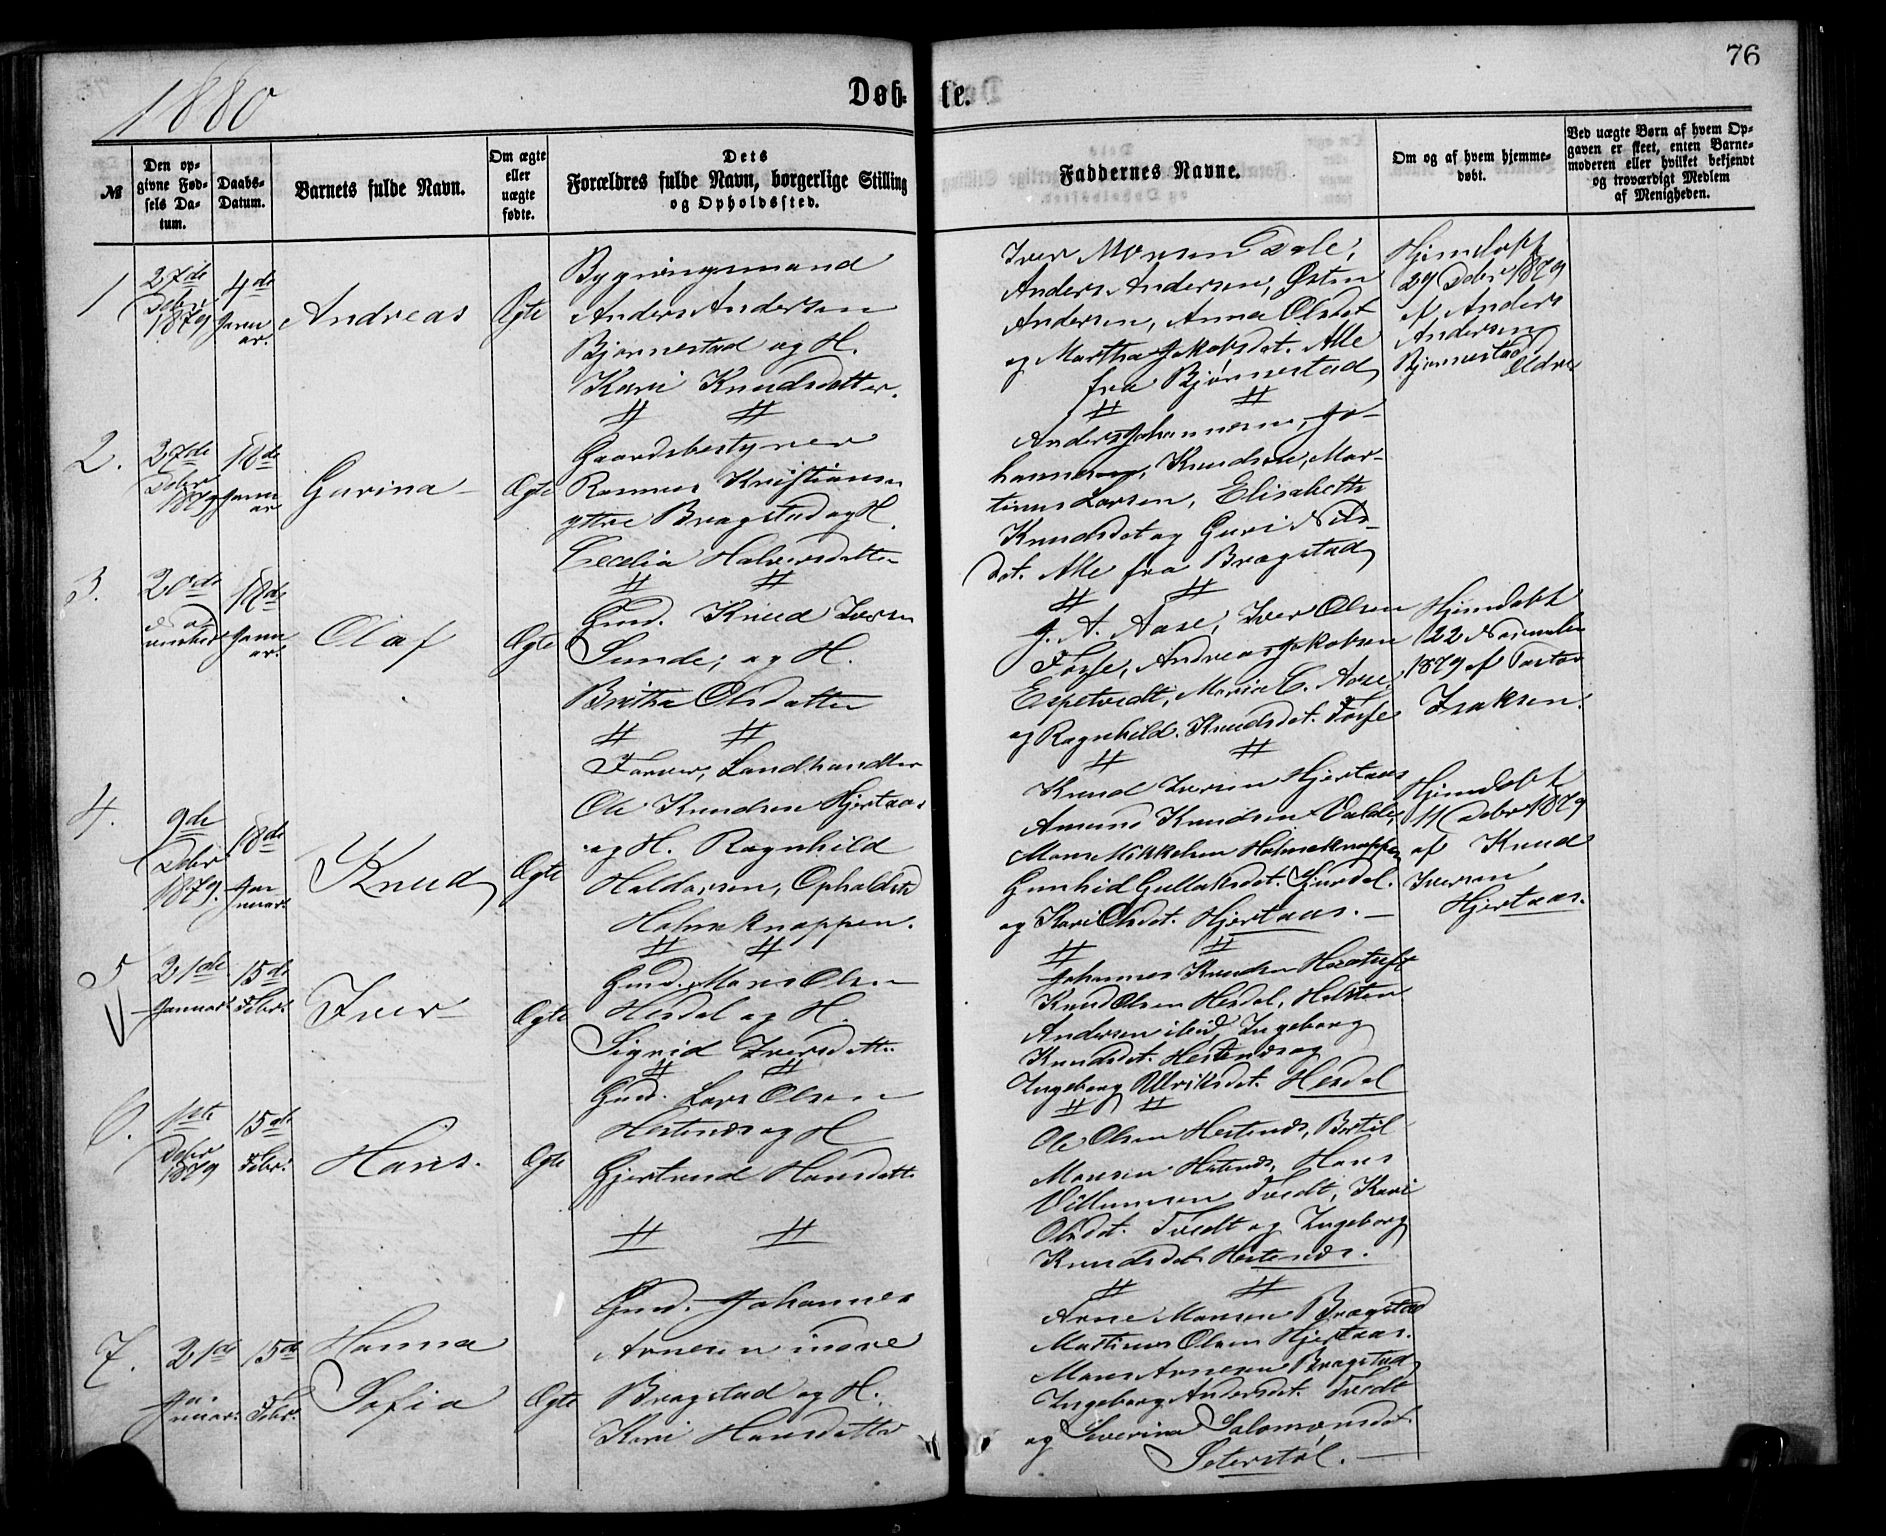 76
1880
Døb- te.
№
Den op-
givne Fød-
sels Da-
tum.
Daabs-
Datum.
Barnets fulde Navn.
Om ægte
eller
uægte
fødte.
Dets
Forældres fulde Navn, borgerlige Stilling
og Opholdssted.
Faddernes Navne.
Om og af hvem hjemme-
døbt.
Ved uægte Børn af hvem Op-
gaven er skeet, enten Barne-
moderen eller hvilket bekjendt
og troværdigt Medlem
af Menigheden.
1
27de
Debr
1879
4de
Janu
ar.
Andreas
Ægte
Bygningsmand
Anders Andersen
Bjørnestad og H.
Kari Knudsdatter.
Iver Monsen Dale,
Anders Andersen, Østen
Andersen, Anna Olsdat
og Martha Jakobsdat. Alle
fra Bjørnestad
Hjemdøpt
29 Debr 1879
af Anders
Andersen
Bjørnestad
Eldre
2.
27de
Debr
1879
18de
Janu
ar
Gurina
Ægte
Gaardsbestyrer
Rasmus Kristiansen
yttre Bragstad og H.
Cecelia Halversdatter
Anders Johannesen, Jo-
hannes Knudsen, Mar-
tinus Larsen, Elisabeth
Knudsdat og Guri Nils-
dat. Alle fra Bragstad
3.
20de
18de
Janu
ar.
Olaf
Ægte
Gmd. Knud Iversen
Sunde, og H.
Britha Olsdatter
J. A. Aase, Iver Olsen
Fosse, Andreas Jakobsen
Espetvedt, Maria C. Aase
og Ragnhild Knudsdat. Fosse
Hjemdøbt
22 November
1879 af Pastor
Isaksen.
4.
9de
Debr
1879.
18de
Jan
uar.
Knud
Ægte
Farver, Landhandler
Ole Knudsen Hjertaas
og H. Ragnhild
Haldorsen, Opholdst
Holmeknappen.
Knud Iversen Hjertaas
Amund Knudsen Valde,
Mons Mikkelsen Holmeknappen
Gunhild Gullaksdat. Sjurdal.
og Kari Olsdat. Hjertaas.
Hjemdøbt
11 Debr 1879
af Knud
Iversen
Hjertaas.
5
21de
Januar.
15de
Febr.
Iver
Ægte
Gmd. Mons Olsen
Hesdal og H.
Sigrid Iversdatter
Johannes Knudsen
Knud Olsen Hesdal, Halsten
Andersen ibid, Ingeborg
Knudsdat. Hestenæs og
Ingeborg Ulriksdat. Hesdal
6.
1ste
Debr
1879
15de
Febr.
Hans.
Ægte
Gmd. Lars Olsen
Hestenæs og H
Gjertrud Hansdatter
Ole Olsen Hestenæs, Bertil
Monsen Hestenæs, Hans
Villumsen Tvedt, Kari
Olsdat. Tvedt og Ingeborg
Knudsdat. Hestenæs.
7.
21de
Ja-
nuar.
15de
Febr.
Hanna
Sofia
Ægte
Gmd. Johannes
Arnesen indre
Bragstad og H.
Kari Hansdatter
Arne Monsen Bragstad
Martinus Olsen Hjertaas.
Mons Arnesen Bragstad
Ingeborg Andersdat. Tvedt
og Severine Salomonsdat.
Seterstøl.